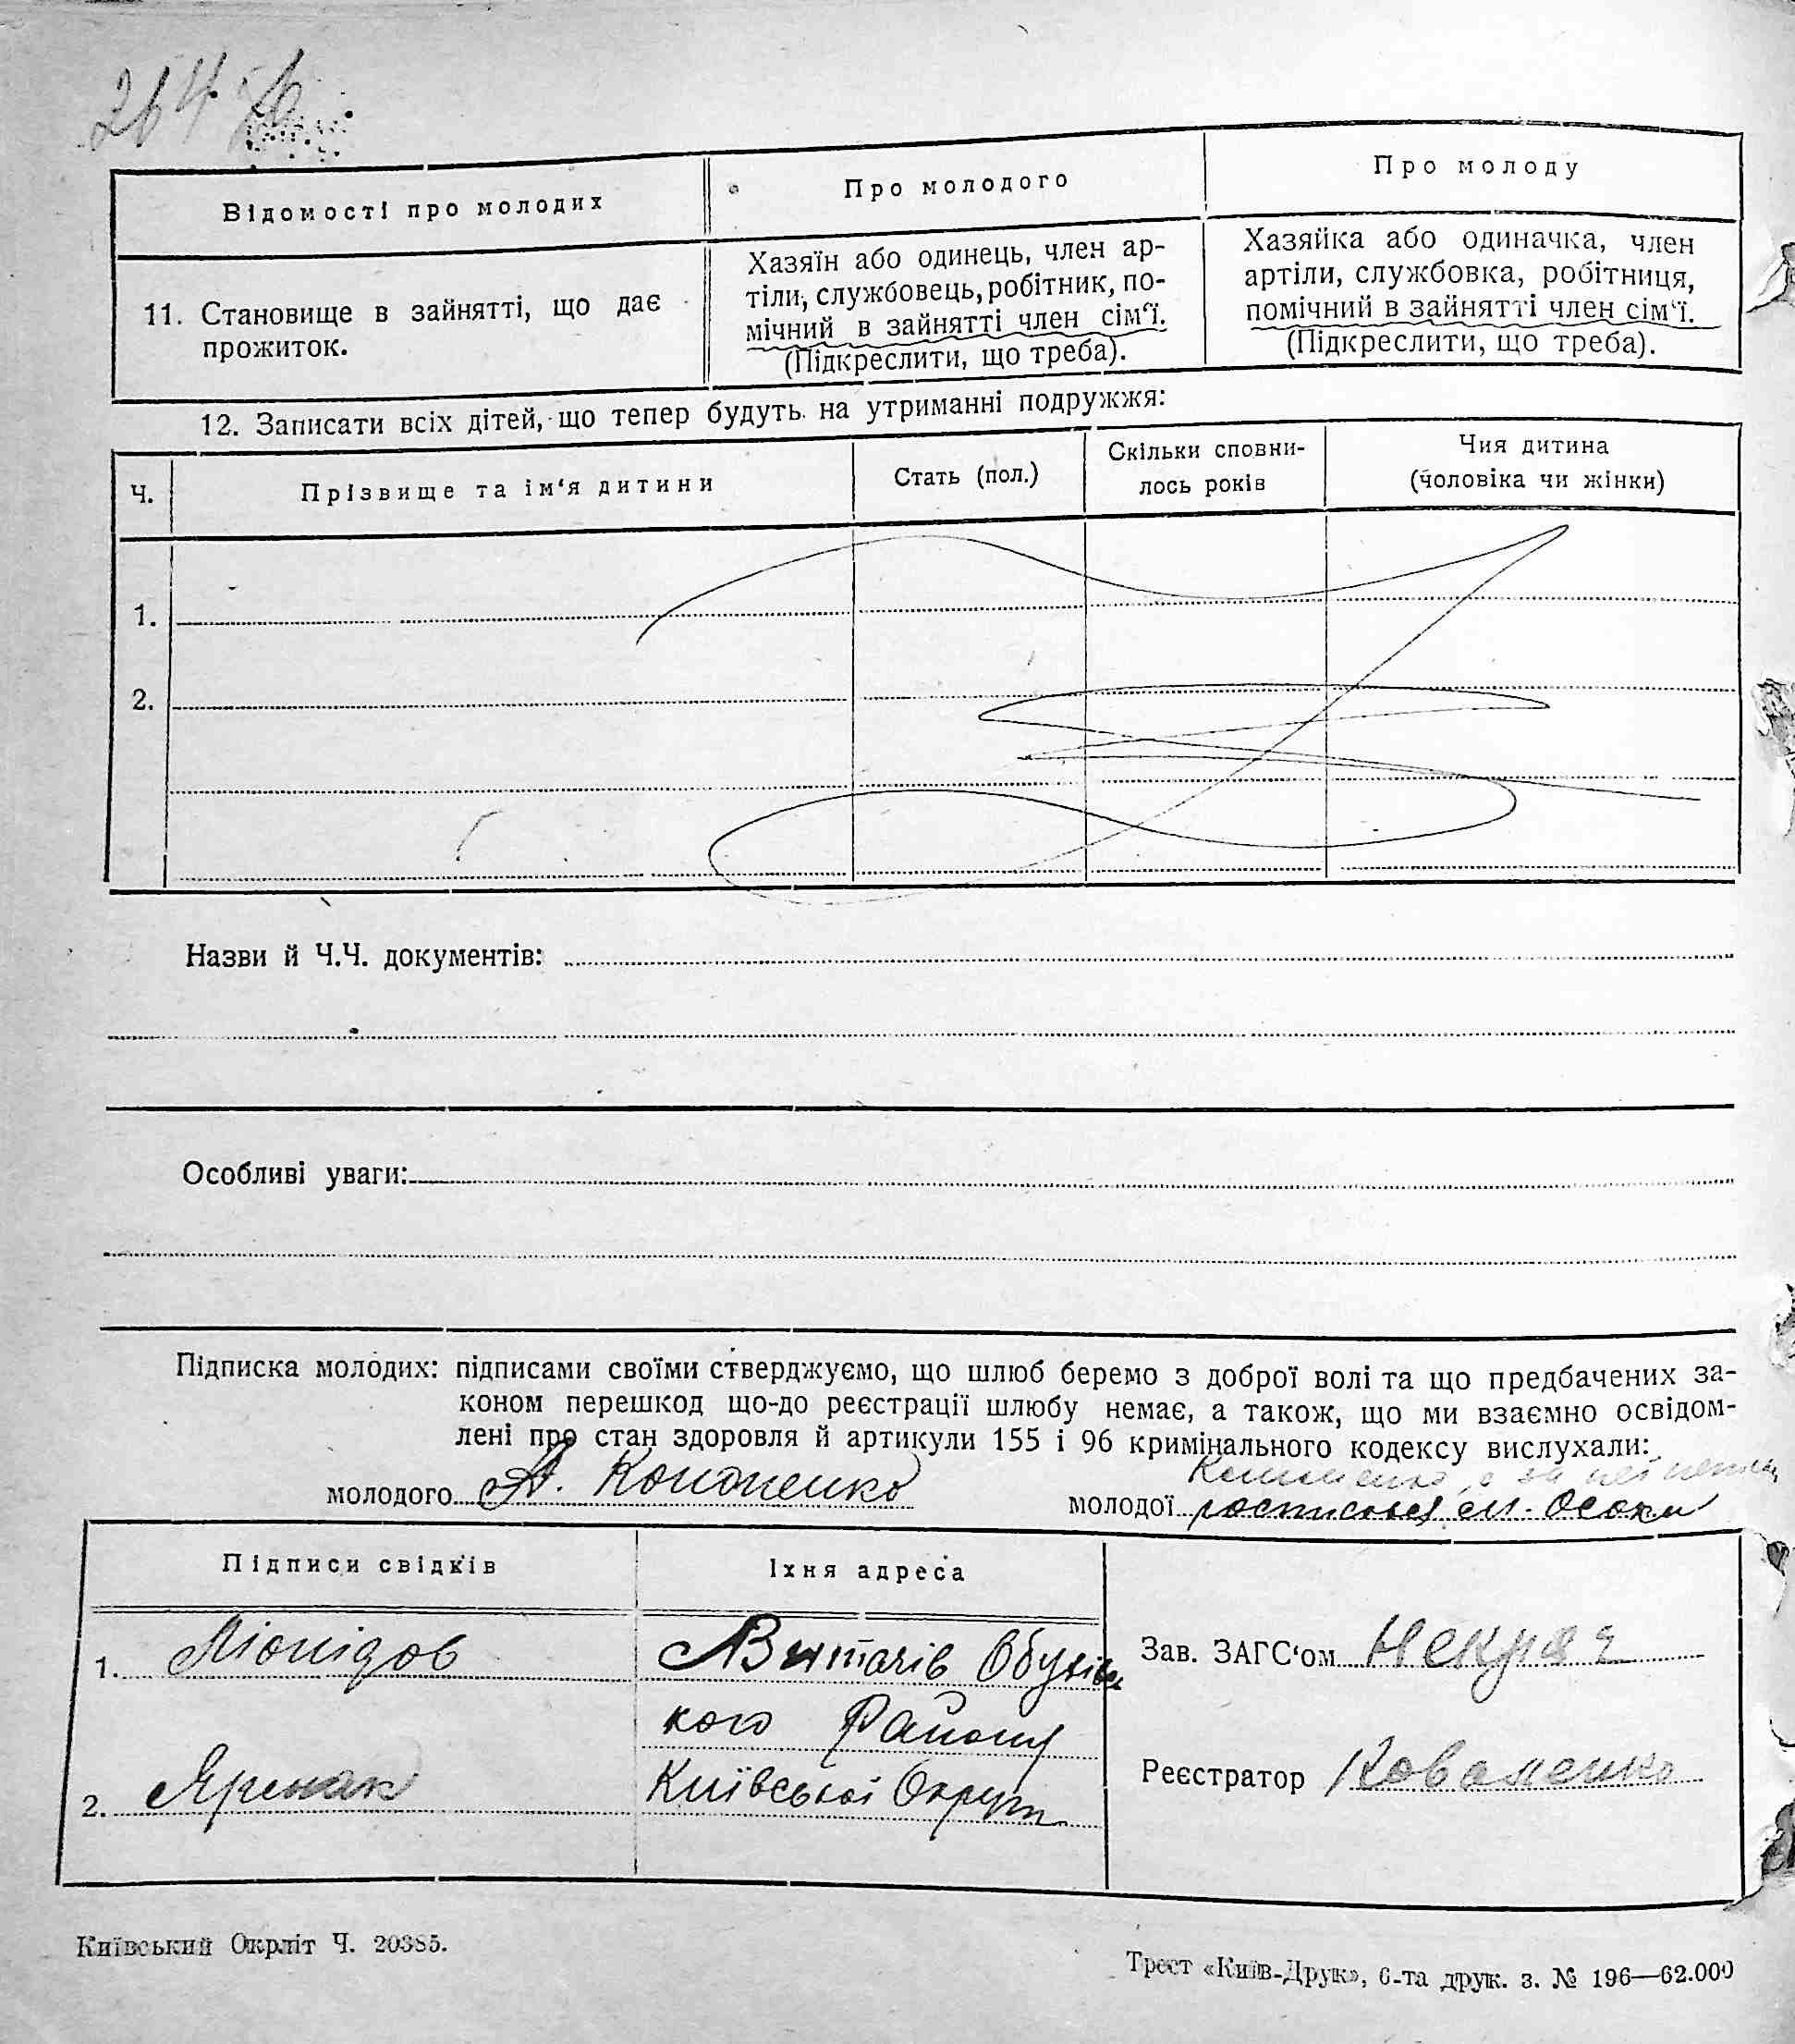 264
Відомості про молодих
Про молодого
Про молоду
11. Становище в зайнятті, що дає
прожиток.
Хазяїн або одинець, член ар-
тіли, службовець, робітник, по-
мічний в зайнятті член сім‘ї.
(Підкреслити, що треба).
Хазяйка або одиначка, член
артіли, службовка, робітниця,
помічний в зайнятті член сім‘ї.
(Підкреслити, що треба).
12. Записати всіх дітей, що тепер будуть на утриманні подружжя:
Ч.
Прізвище та ім‘я дитини
Стать (пол.)
Скільки сповни-
лось років
Чия дитина
(чоловіка чи жінки)
1.
2.
Назви й Ч.Ч. документів:
Особливі уваги:
Підписка молодих: підписами своїми стверджуємо, що шлюб беремо з доброї волі та що предбачених за-
коном перешкод що-до реєстрації шлюбу немає, а також, що ми взаємно освідом-
лені про стан здоровля й артикули 155 і 96 кримінального кодексу вислухали:
молодого А. Кононенко
Кононенко а за неї
молодої росписався М. Осока
Підписи свідків
Їхня адреса
1.Ліонідов
Витачів Обухівс
кого Району
Київської Округи
2. Яренак
Зав. ЗАГС‘ом Некряч
Реєстратор Коваленко
Київський Окрліт Ч. 20385.
Трест «Київ-Друк», 6-та друк. з. № 196—62.000